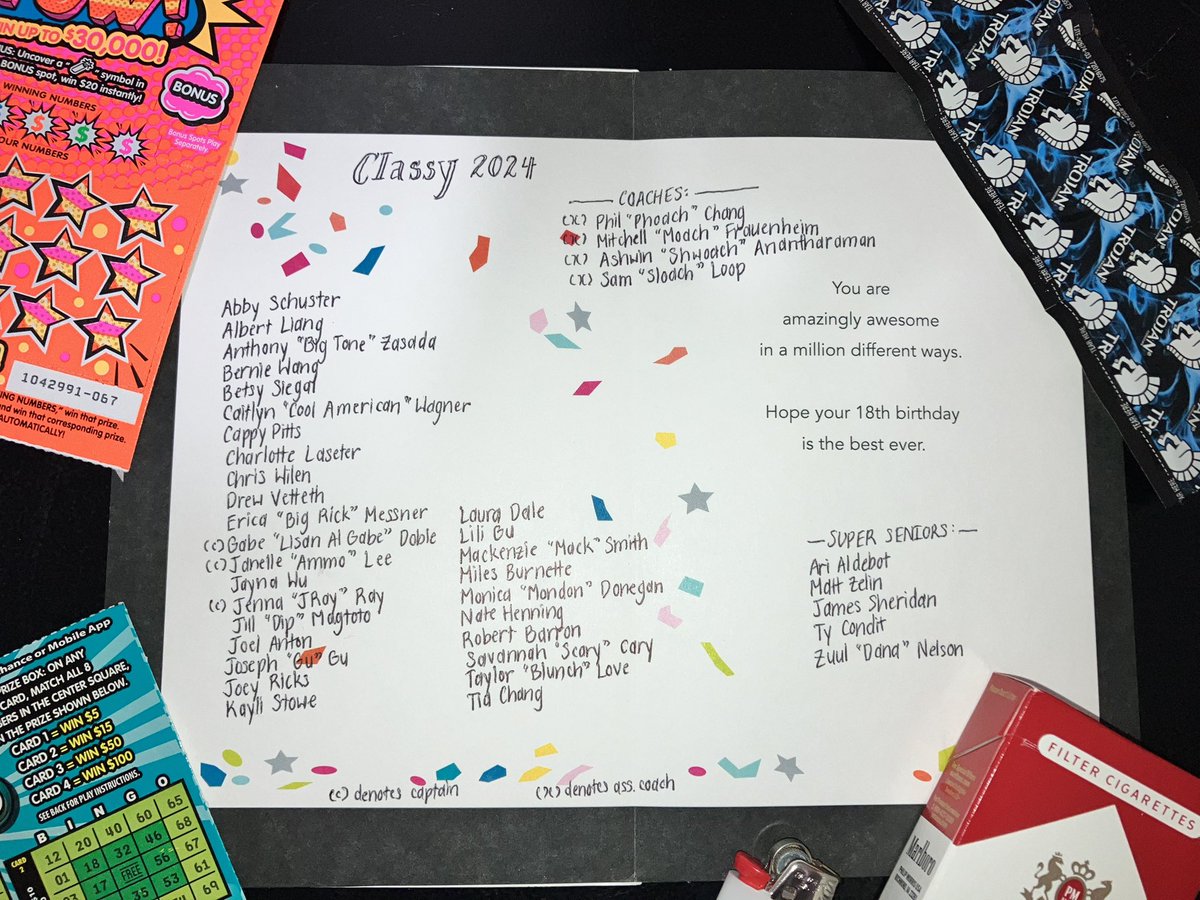 WOW!
WIN UP TO $30,000!
BONUS: Uncover a " " symbol in
BONUS spot, win $20 instantly!
BONUS
Bonus Spots Play
Separately.
WINNING NUMBERS
$ $ $ $
YOUR NUMBERS
1042991-067
"WINNING NUMBERS," win that prize.
and win that corresponding prize.
AUTOMATICALLY!
Classy 2024
COACHES:
(x) Phil "Phoach" Chang
(x) Mitchell "Moach" Frauenheim
(x) Ashwin "Shwoach" Anantharaman
(x) Sam "Sloach" Loop
You are
amazingly awesome
in a million different ways.
Hope your 18th birthday
is the best ever.
Abby Schuster
Albert Liang
Anthony "Big Tone" Zasada
Bernie Wang
Betsy Siegal
Caitlyn "Cool American" Wagner
Cappy Pitts
Charlotte Laseter
Chris Wilen
Drew Vetteth
Erica "Big Rick" Messner
(c) Gabe "Lisan Al Gabe" Doble
(c) Janelle "Ammo" Lee
Jayna Wu
(c) Jenna "JRay" Ray
Jill "Dip" Magtoto
Joel Anton
Joseph "Gu" Gu
Joey Ricks
Kayli Stowe
Laura Dale
Lili Gu
Mackenzie "Mack" Smith
Miles Burnette
Monica "Mondon" Donegan
Nate Henning
Robert Barron
Savannah "Scary" Cary
Taylor "Blunch" Love
Tia Chang
SUPER SENIORS:
Ari Aldebot
Matt Zelin
James Sheridan
Ty Condit
Zuul "Dana" Nelson
(c) denotes captain
(x) denotes ass. coach
TROJAN
TROJAN
TROJAN
TROJAN
TROJAN
TEAR HERE
chance or Mobile App
PRIZE BOX: ON ANY
CARD, MATCH ALL 8
NUMBERS IN THE CENTER SQUARE,
WIN THE PRIZE SHOWN BELOW.
CARD 1 = WIN $5
CARD 2 = WIN $15
CARD 3 = WIN $50
CARD 4 = WIN $100
SEE BACK FOR PLAY INSTRUCTIONS.
B I N G O
CARD 2
12 20 40 60 65
01 18 32 46 68
17 FREE 56 67
35 53 61
69
FILTER CIGARETTES
Marlboro
PHILIP MORRIS USA
RICHMOND, VA
PM